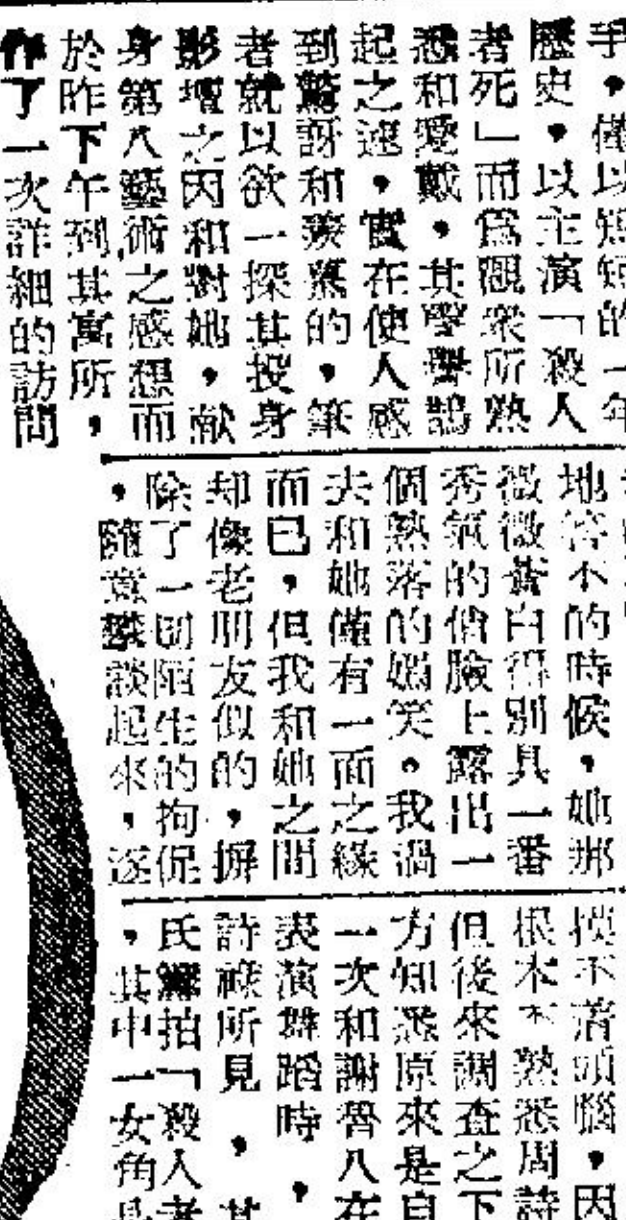 手，僅以短短的一年
歷史，以主演「殺人
者死」而爲觀衆所熟
悉和愛戴，其聲譽鵲
起之速，實在使人感
到驚訝和羨慕的，筆
者就以欲一探其投身
影壇之因和對她，献
身第八藝術之感想而
於昨下午到其寓所，
作了一次詳細的訪問
地答不的時候，她那
微微蒼白得別具一番
秀氣的俏臉上露出一
個熟落的嫣笑。我過
去和她僅有一面之緣
而已，但我和她之間
却像老朋友似的，摒
除了一切陌生的拘促
，隨意攀談起來，逐
摸不着頭腦，因
根本不熟悉周詩
但後來調查之下
方知悉原來是自
一次和謝晋八在
表演舞蹈時，
詩祿所見，其
氏籌拍「殺人者
，其中一女角是